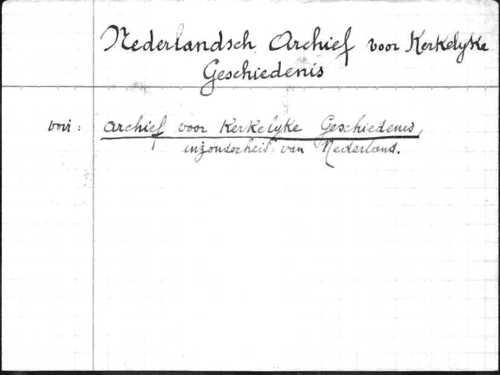 Nederlandsch Archief voor Kerkelyke
Geschiedenis
voir : Archief voor Kerkelyke Geschiedenis,
inzonderheit van Nederland.